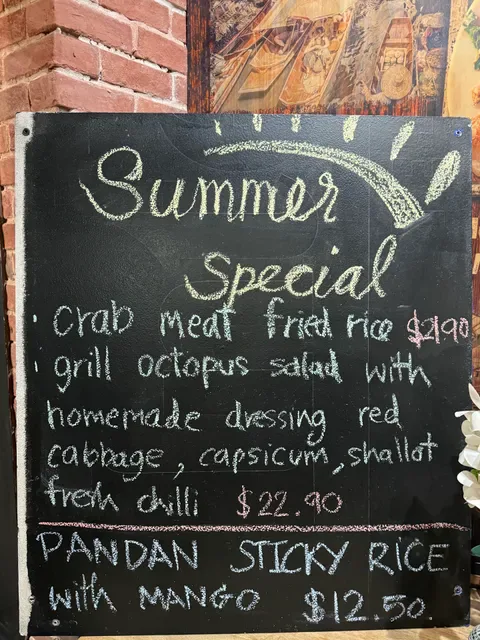 Summer
Special
• Crab meat fried rice $21.90
• grill octopus salad with
homemade dressing red
cabbage, capsicum, shallot
fresh chilli $22.90
PANDAN STICKY RICE
with MANGO $12.50